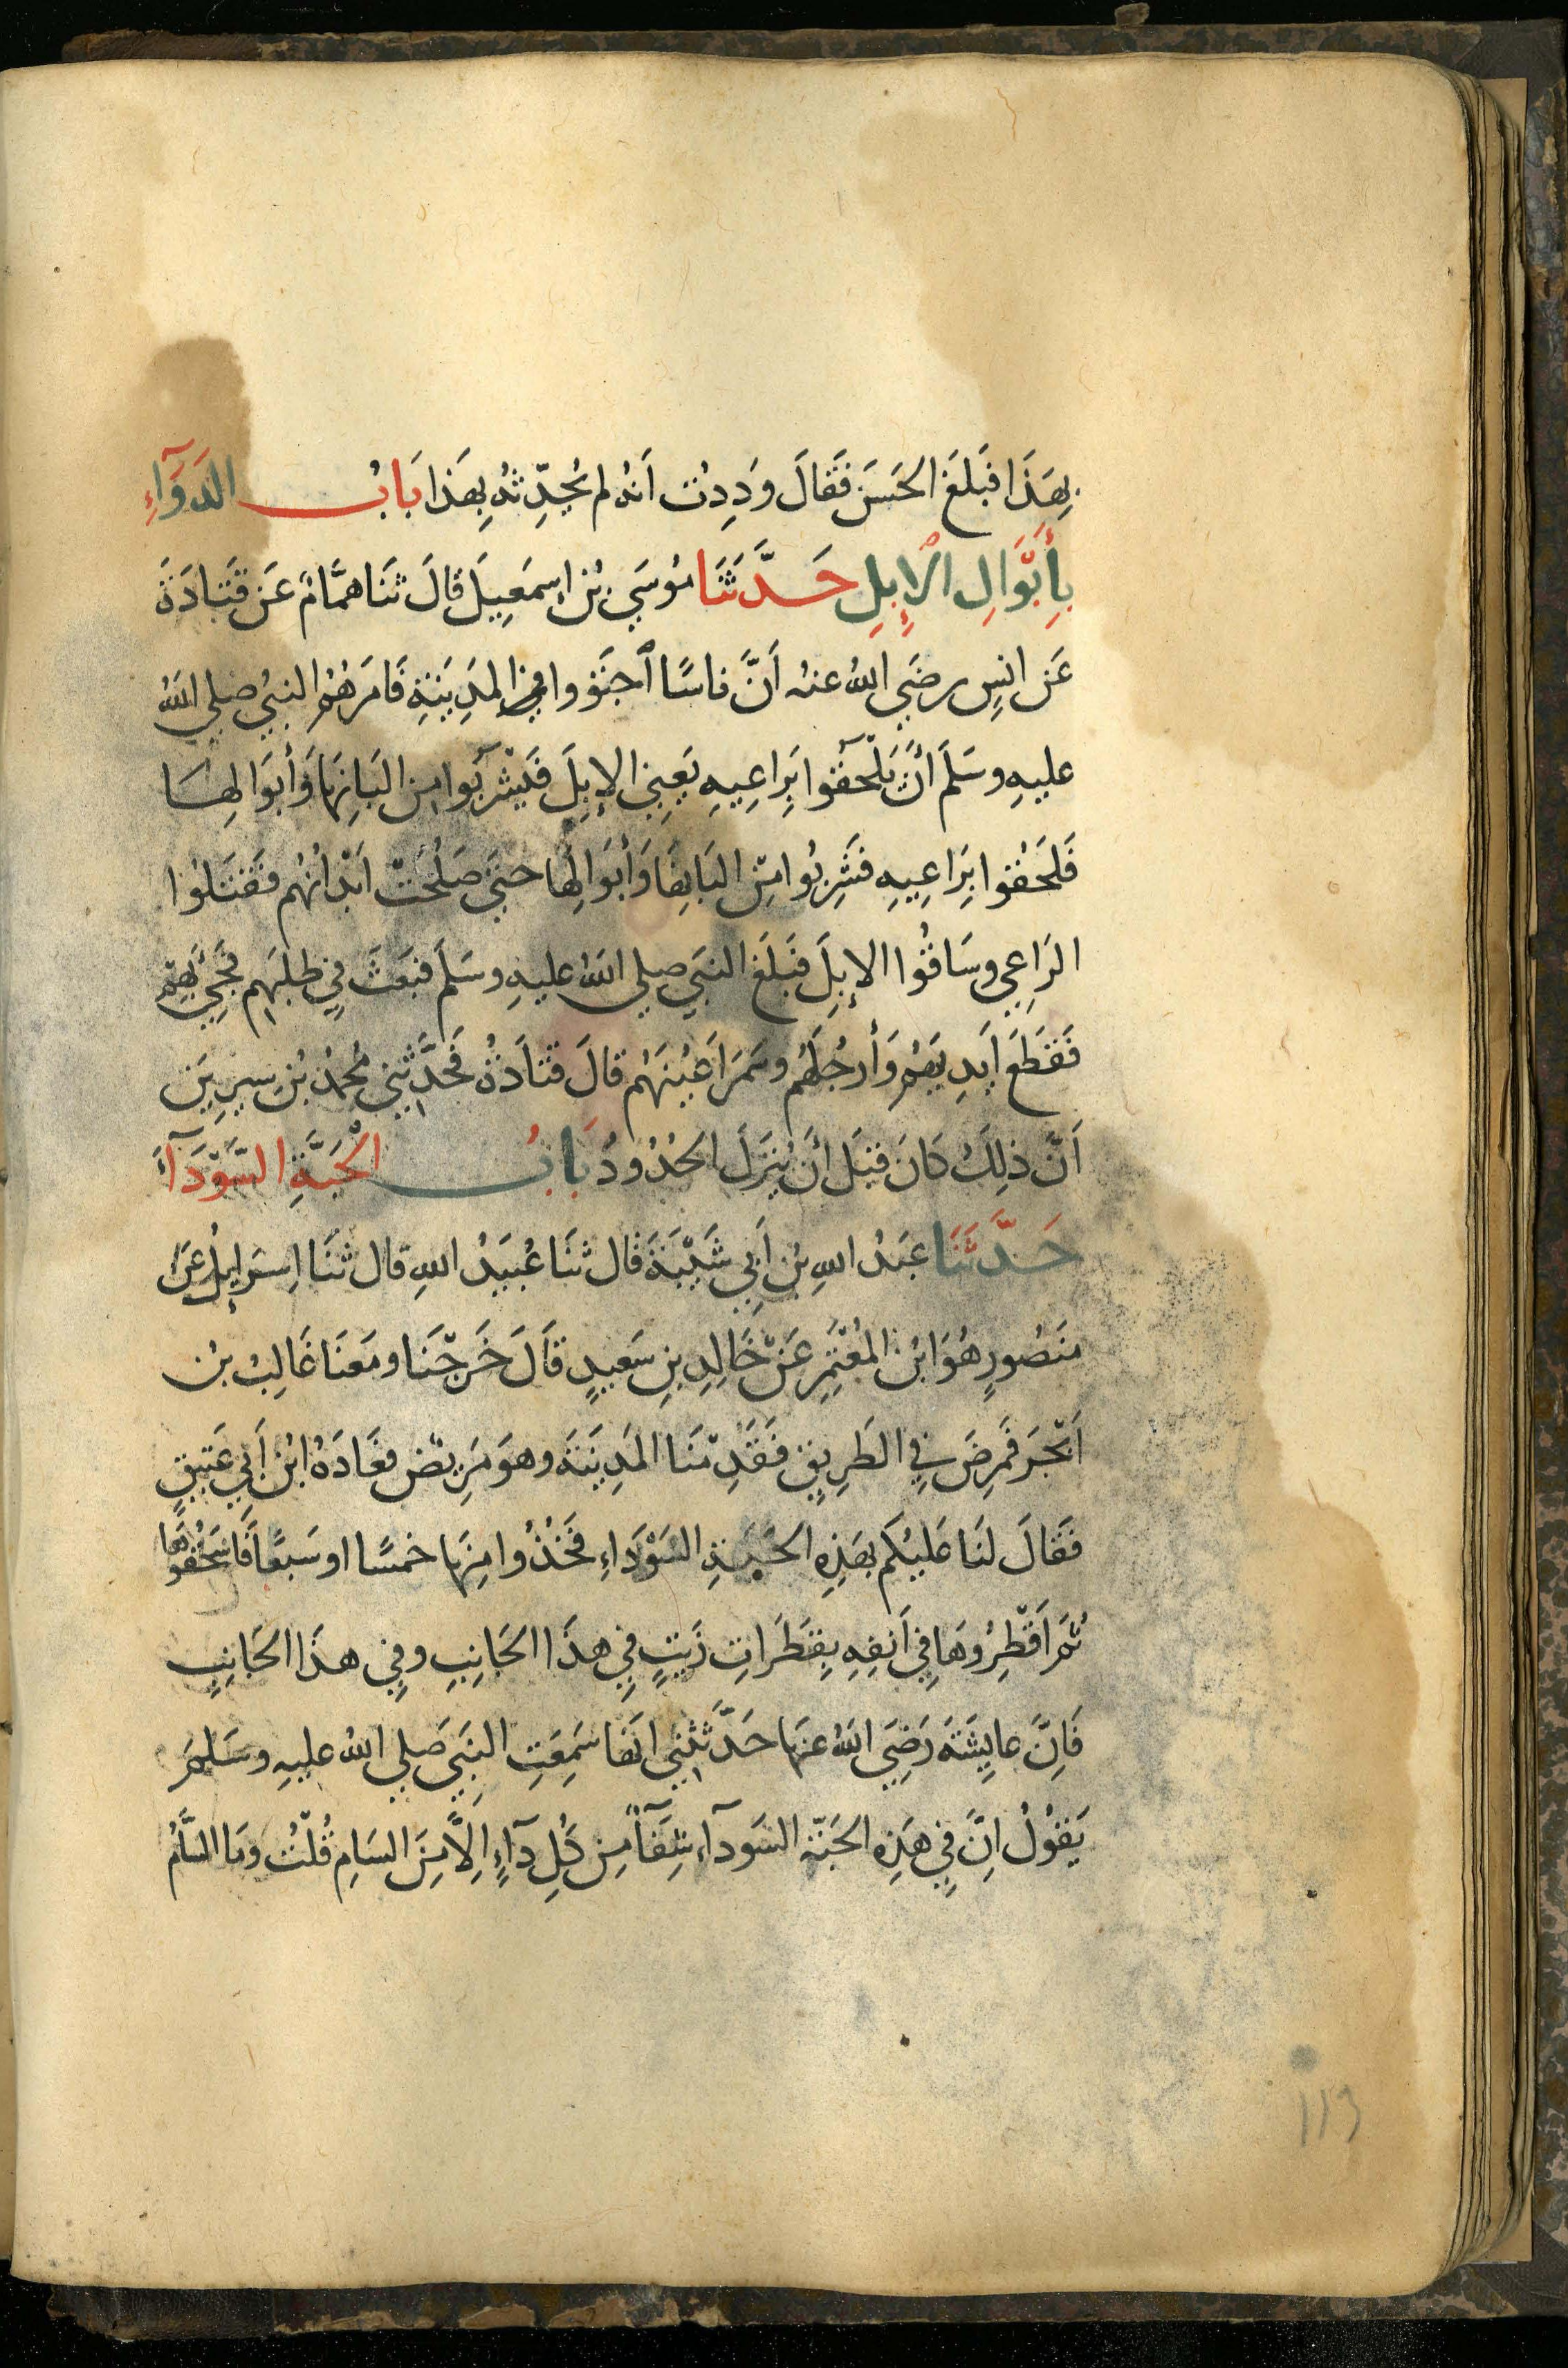 بِهَذَا فَبَلَغَ الحَسَنَ فَقَالَ وَدِدْتُ اَنهُ لم يُحَدِّثهُ بِهَذا بَابُ الدَوَآءِ
بِأَبْوَالِ الْإِبِلِ حَدَّثَنَا مُوسَي بْنُ إِسمَعِيلَ قَالَ ثَنَا هَمَّامٌ عَن قَتَادَةَ
عَن انسٍ رضَي اللهُ عنهُ اَنَّ ناسًا اَجتَوَوا في المَدِينَةِ فَامَرَهُم النبيُ صلي اللهُ
عليهِ وسَلَم أَنْ يَلْحَقُوا بِرَاعِيهِ يَعِني الإبِلَ فَيَشْرَبُوا مِن البَانِهَا وَأبوَالِهَا
فَلَحَقُوا بِرَاعِيهِ فشَرِبُوا مِن البَانِهَا وَأَبوَالِهَا حتيَ صَلُحَتْ اَبْدَانُهُم فقَتَلوُا
الرَاعِي وسَاقُوا الإبِلَ فَبَلَغَ النبيَ صلي اللهُ عليهِ وسَلَم فبَعَثَ فِي طلَبِهِم فَجِيَ بِهِم
فَقَطَعَ اَيدِيَهُم وَأَرجُلَهُم وسَمَرَ اَعيُنَهُم قالَ قَتَادَةُ فَحَدَّثَنِي مُحمدُ بْن سِيرِينَ
اَنّ ذلِكَ كَانَ قبَل أَن يُنزَلَ الحُدُودُ بَابُ الْحَبَّةِ السَّوْدَآءَ
حَدَّثَنَا عبَدُ اللهِ بْن اَبِي شَيْبَةَ قَال ثنَا عُبيَدُ اللهِ قال ثنَا إسرَايِلُ عَن
مَنصُورٍ هُوَ ابْن المُعْتَمِرِ عَنْ خَالِدِ بنِ سَعِيدٍ قَالَ خَرَجْنَا ومَعَنَا غَالِبُ بْن
اَبْجَرَ فَمرِضَ فِي الطَرِيقِ فَقَدِمْنَا المَدِينَةَ وهوَ مَرِيض فعَادَهُ ابْن اَبِي عَتِيقٍ
فقَالَ لنَا عَليْكُم بهَذِهِ الحَبَةِ السَوْدَاءِ فَخُذُوا مِنهَا خمسًا او سَبعًا فَاسحَقُوهَا
ثُمَ اَقْطِرُوهَا فِي اَنفِهِ بِقَطَرَاتِ زَيتٍ فِي هذَا الجَانِبِ وفِي هذَا الجَانِبِ
فَاِنَّ عايِشَةَ رَضِيَ اللهُ عنهَا حَدَّثَتْنِي انهَا سَمِعَتِ النبَيَ صَلي اللهُ عليهِ وسَلمَ
يَقُوُلُ اِنَّ فِي هَذِهِ الحَبَةِ السَودَآءِ شِفَآءً مِن كُلِ دَآءٍ اِلاَّ مِنَ السَامِ قُلْتُ ومَا السَّامُ
113